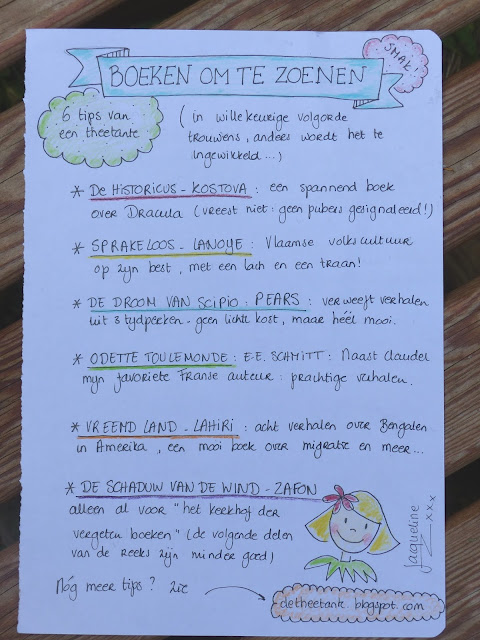 BOEKEN OM TE ZOENEN
SMAK!
6 tips van
een theetante
(in willekeurige volgorde
trouwens, anders wordt het te
ingewikkeld...)
* De HISTORICUS - KOSTOVA : een spannend boek
over Dracula (vreest niet : geen pubers gesignaleerd!)
* SPRAKELOOS - LANOYE : Vlaamse volkscultuur
op zijn best, met een lach en een traan!
* DE DROOM VAN SCIPIO : PEARS : verweeft verhalen
uit 3 tijdperken - geen lichte kost, maar héél mooi.
* ODETTE TOULEMONDE : E.E. SCHMITT : Naast Claudel
mijn favoriete Franse auteur : prachtige verhalen.
* VREEMD LAND - LAHIRI : acht verhalen over Bengalen
in Amerika, een mooi boek over migratie en meer...
* DE SCHADUW VAN DE WIND - ZAFON
alleen al voor "het kerkhof der
vergeten boeken" (de volgende delen
van de reeks zijn minder goed)
Jacqueline
xxx
Nóg meer tips? Zie
detheetante.blogspot.com